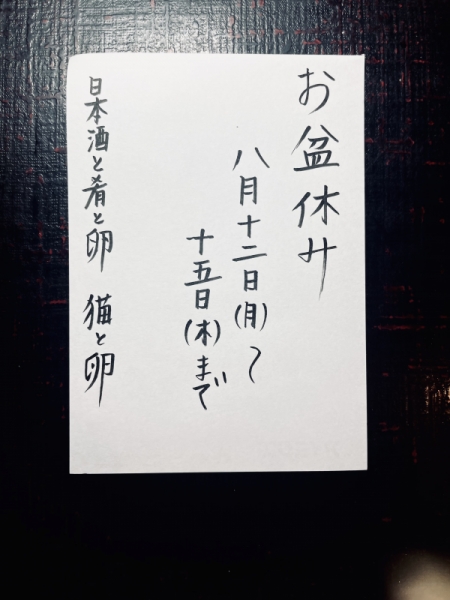 お盆休み
八月十二日(月)〜
十五日(木)まで
日本酒と肴と卵 猫と卵